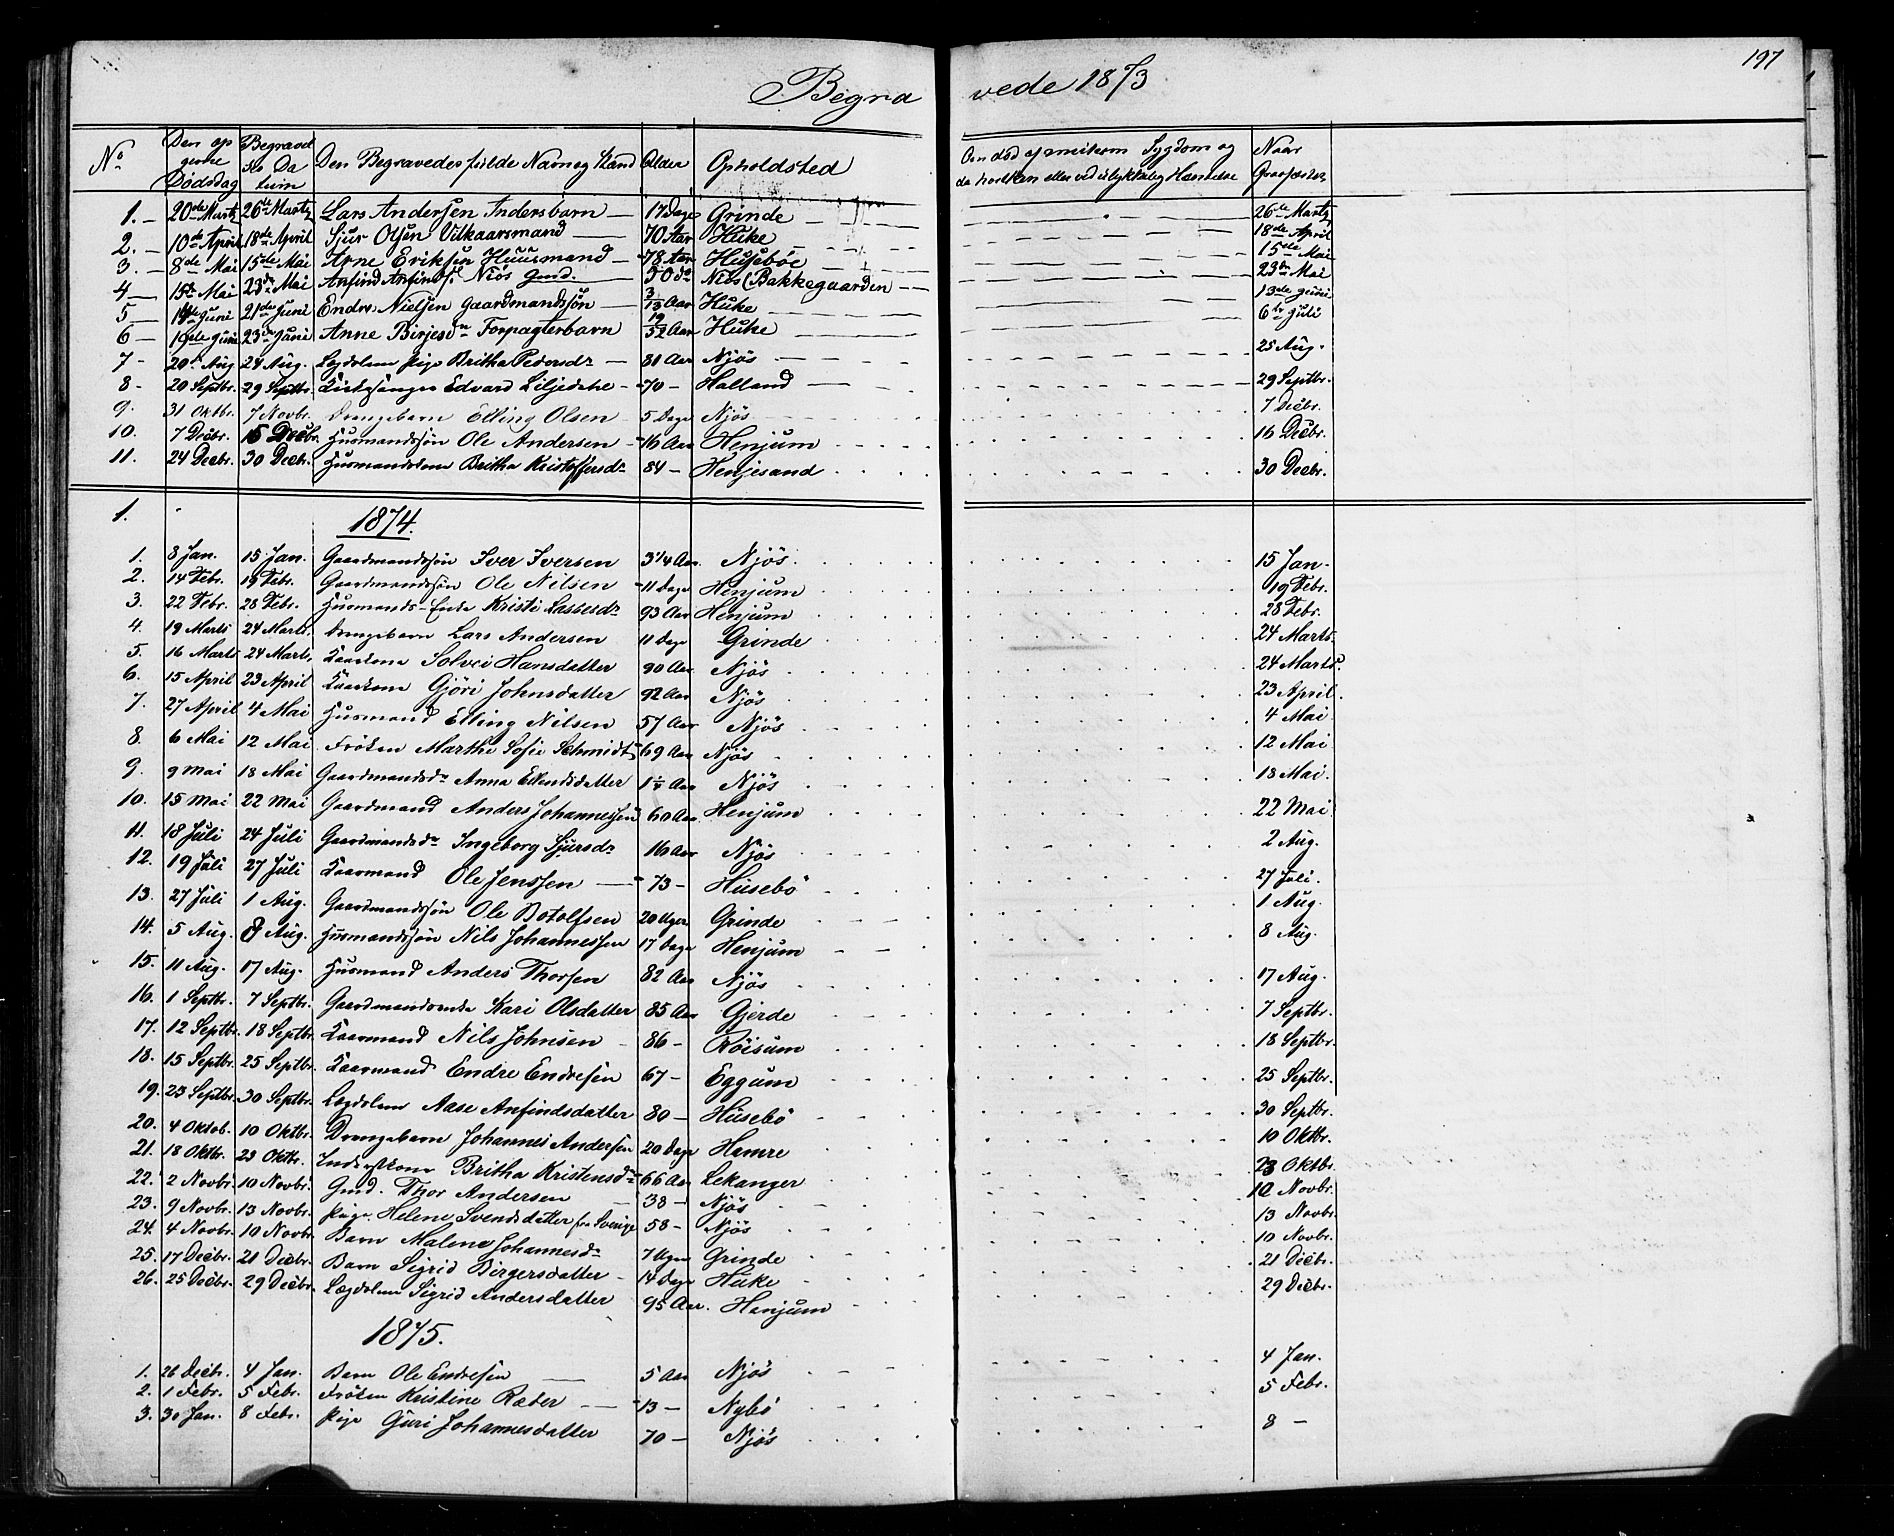 197
Begravede 1873
No Den opgivne Dødsdag Begravelses Datum Den Begravedes fulde Navn og Stand Alder Opholdsted Om død af Sygdom og da eller ved ulykkelig Hændelse Naar
1. 20de Marts 26de Marts Lars Andersen Indersbarn 17 Dage Grinde 26de Marts
2. 10de April 18de April Sjur Olsen Vilkaarsmand 70 Aar Huke 18de April
3. 8de Mai 15de Mai Arne Eriksen Huusmand 78 Aar Husebøe 15de Mai
4 15de Mai 23de Mai Anfind Anfinds. Niøs Gmd. 50 do Niøs (Bakkegaarden 23de Mai
5 14de Juni 21de Juni Endre Nielsen Gaardmandssøn 3/13 Aar Huke 13de Juni
6 16de Juni 23de Juni Anne Birjesdr Forpagterbarn 19/52 Aar Huke 6te Juli
7 20de Aug 24 Aug. Lægdslem Pige Britha Pedersdr 81 Aar Njøs 25 Aug.
8 20 Septbr. 29 Septbr. Kirkesanger Edvard Liljedahl 70 Halland 29 Septbr.
9. 31 Oktbr. 7 Novbr. Drengebarn Elling Olsen 5 Dage Njøs 7 Decbr.
10. 7 Decbr. 16 Decbr. Husmandssøn Ole Andersen 16 Aar Henjum 16 Decbr.
11. 24 Decbr. 30 Decbr. Husmandskone Britha Kristoffersdr 84 Henjesand 30 Decbr.
1. 1874.
1. 8 Jan. 15 Jan. Gaardmandssøn Iver Iversen 3 1/4 Aar. Njøs 15 Jan.
2. 14 Febr. 19 Febr. Gaardmandssøn Ole Nilsen 11 Dage Henjum 19 Febr.
3. 22 Febr. 28 Febr. Husmands-Enke Kristi Lassesdr 93 Aar Henjum 28 Febr.
4. 19 Marts 24 Marts. Drengebarn Lars Andersen 11 Dage Grinde 24 Marts.
5. 16 Marts 24 Marts, Kaarkone Solvei Hansdatter 90 Aar Njøs 24 Marts.
6. 15 April 23 April Kaarkone Gjøri Johnsdatter 92 Aar Njøs 23 April.
7. 27 April 4 Mai Husmand Elling Nilsen 57 Aar Njøs 4 Mai
8. 6 Mai 12 Mai Frøken Marthe Sofie Schmidt 69 Aar Njøs 12 Mai
9. 9 Mai 18 Mai Gaardmandsdr Anna Ellendsdatter 1 1/4 Aar Njøs 18 Mai.
10. 15 Mai 22 Mai Gaardmand Anders Johannessen 60 Aar Henjum 22 Mai
11. 18 Juli 24 Juli Gaardmandsdr Ingeborg Sjursdr 16 Aar Njøs 2 Aug.
12. 19 Juli 27 Juli Kaarmand Ole Jenssen 73 Husebø 27 Juli.
13. 27 Juli 1 Aug. Gaardmandssøn Ole Botolfsen 20 Uger Grinde 1 Aug.
14. 5 Aug. 8 Aug. Husmandssøn Nils Johannessen 17 Dage Henjum 8 Aug.
15. 11 Aug. 17 Aug. Husmand Anders Thorsen 82 Aar Njøs 17 Aug.
16. 1 Septbr. 7 Septbr. Gaardmandsenke Kari Olsdatter 85 Aar Gjerde 7 Septbr.
17. 12 Septbr. 18 Septbr. Kaarmand Nils Johnsen 86 Røisum 18 Septbr.
18. 15 Septbr. 25 Septbr. Kaarmand Endre Endresen 67 Eggum 25 Septbr.
19. 23 Septbr. 30 Septbr. Lægdslem Aase Anfindsdatter 80 Husebø 30 Septbr.
20. 4 Oktob. 10 Oktbr. Drengebarn Johannes Andersen 20 Dage Hamre 10 Oktbr.
21. 18 Oktbr. 23 Oktbr. Britha Kristensdr 66 Aar Lekanger 23 Oktbr.
22. 2 Novbr. 10 Novbr. Gmd. Thor Andersen 38 Njøs 10 Novbr.
23. 9 Novbr. 13 Novbr. Pige Helene Svendsdatter fra Sverige 58 Njøs 13 Novbr.
24. 4 Novbr. 10 Novbr. Barn Malene Johannesdr 7 Uger Grinde 10 Novbr.
25. 17 Decbr. 21 Decbr. Barn Sigrid Birgersdatter 14 Dage Huke 21 Decbr.
26. 25 Decbr. 29 Decbr. Lægdslem Sigrid Andersdatter 95 Aar. Henjum 29 Decbr.
1875.
1. 26 Decbr. 4 Jan. Barn Ole Endresen 5 Aar Njøs 4 Jan.
2. 1 Febr. 5 Febr. Frøken Kristine Ræber 13 Nybø 5 Febr.
3. 30 Jan. 8 Febr. Pige Guri Johannesdatter 70 Njøs 8